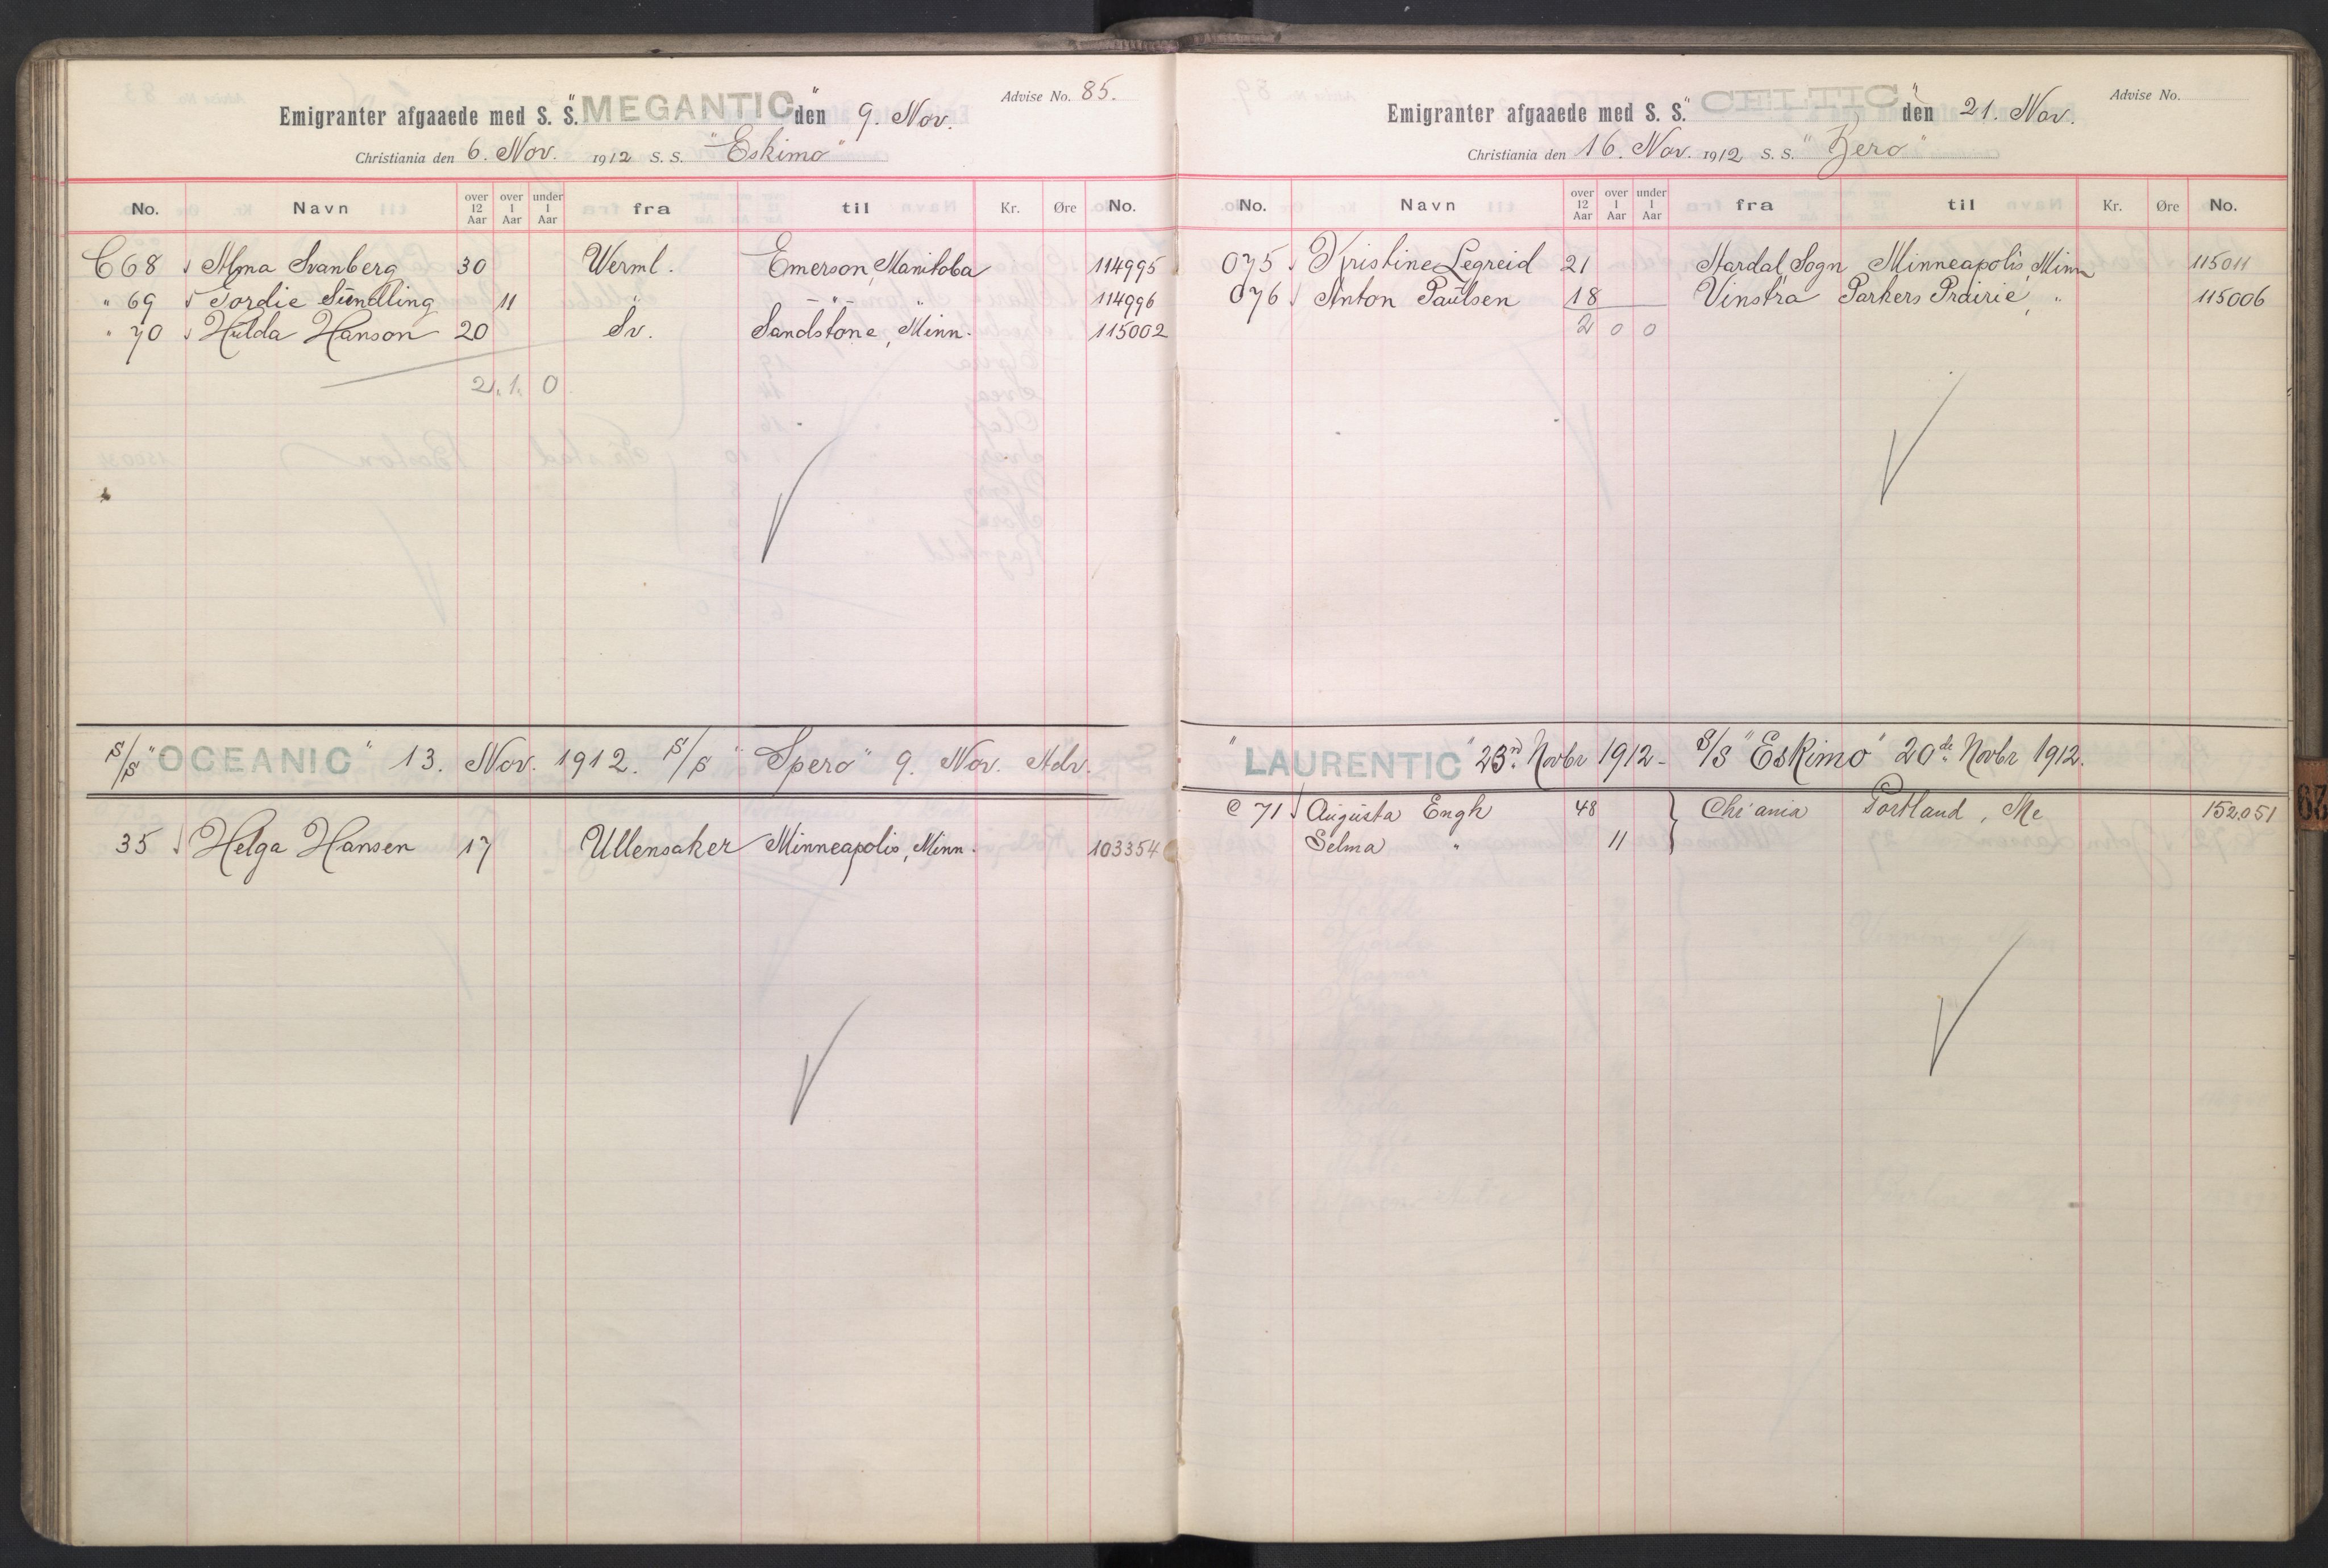 Advise No. 85.
Emigranter afgaaede med S. S. "MEGANTIC" den 9. Nov.
Christiania den 6. Nov. 1912 S. S. "Eskimo"
No. Navn over 12 Aar over 1 Aar under 1 Aar fra til Kr. Øre No.
C 68 Alma Svanberg 30 Werml. Emerson, Manitoba 114995
" 69 Tordie Sundling 11 " " " 114996
" 70 Hulda Hanson 20 Sv. Sandstone, Minn. 115002
2. 1. 0
S/S "OCEANIC" 13. Nov. 1912. S/S "Spero" 9. Nov. Adv.
35 Helga Hansen 17 Ullensaker Minneapolis, Minn. 103354
Advise No.
Emigranter afgaaede med S. S. "CELTIC" den 21. Nov.
Christiania den 16. Nov. 1912 S. S. "Bero"
No. Navn over 12 Aar over 1 Aar under 1 Aar fra til Kr. Øre No.
O75 Kristine Legreid 21 Aardal, Sogn Minneapolis, Minn 115011
O76 Anton Paulsen 18 Vinstra Parkers Prairie, " 115006
2 0 0
"LAURENTIC" 23rd Novbr 1912 - S/S "Eskimo" 20de Novbr 1912.
C 71 Augusta Engh 48 Chr'ania Portland, Me 152,051
Selma " 11